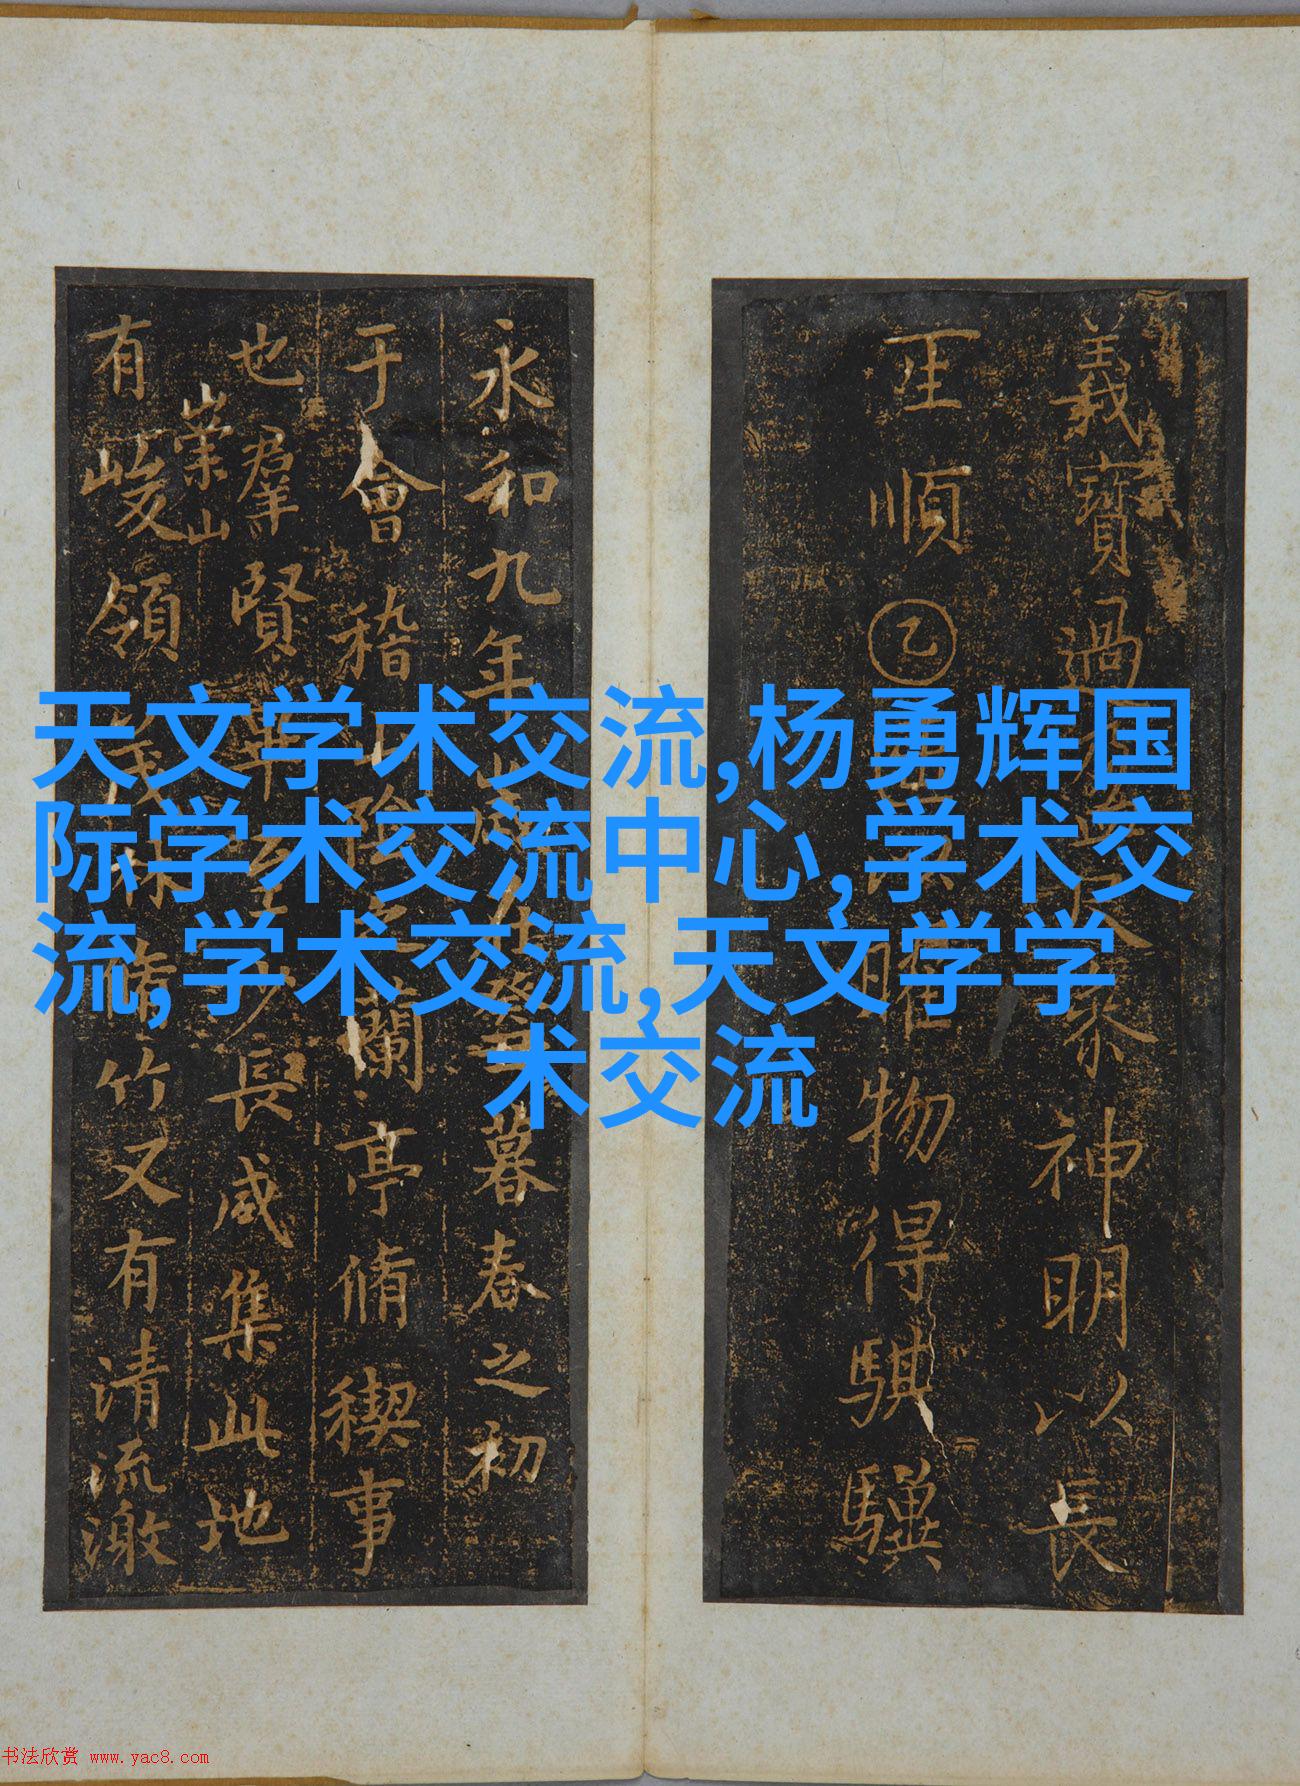 天文学术交流,杨勇辉国
际学术交流中心,学术交
流,学术交流,天文学学
术交流
義寶過泰神明以長
順乙物得騏驥
永和九年在癸丑暮春之初
于會稽山陰之蘭亭脩稧事
也羣賢畢至少長咸集此地
崇山
有峻領茂林脩竹又有清流激
书法欣赏 www.yac8.com